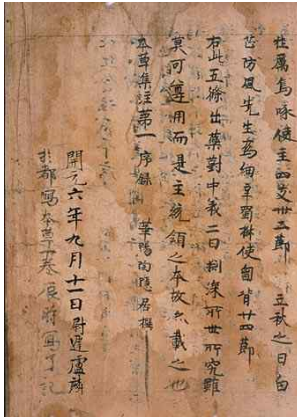 牡厲烏喙使主四支卅二節 立秋之日白
芷防風先生為細辛蜀椒使勾背廿四節
右此五條出藥對中義旨捌深非世所究雖
莫可遵用而是主統領之本故亦載之也
本草集注第一 序錄 華陽陶隱居撰
開元六年九月十一日尉遲盧麟
於都寫本草一卷辰時寫了記